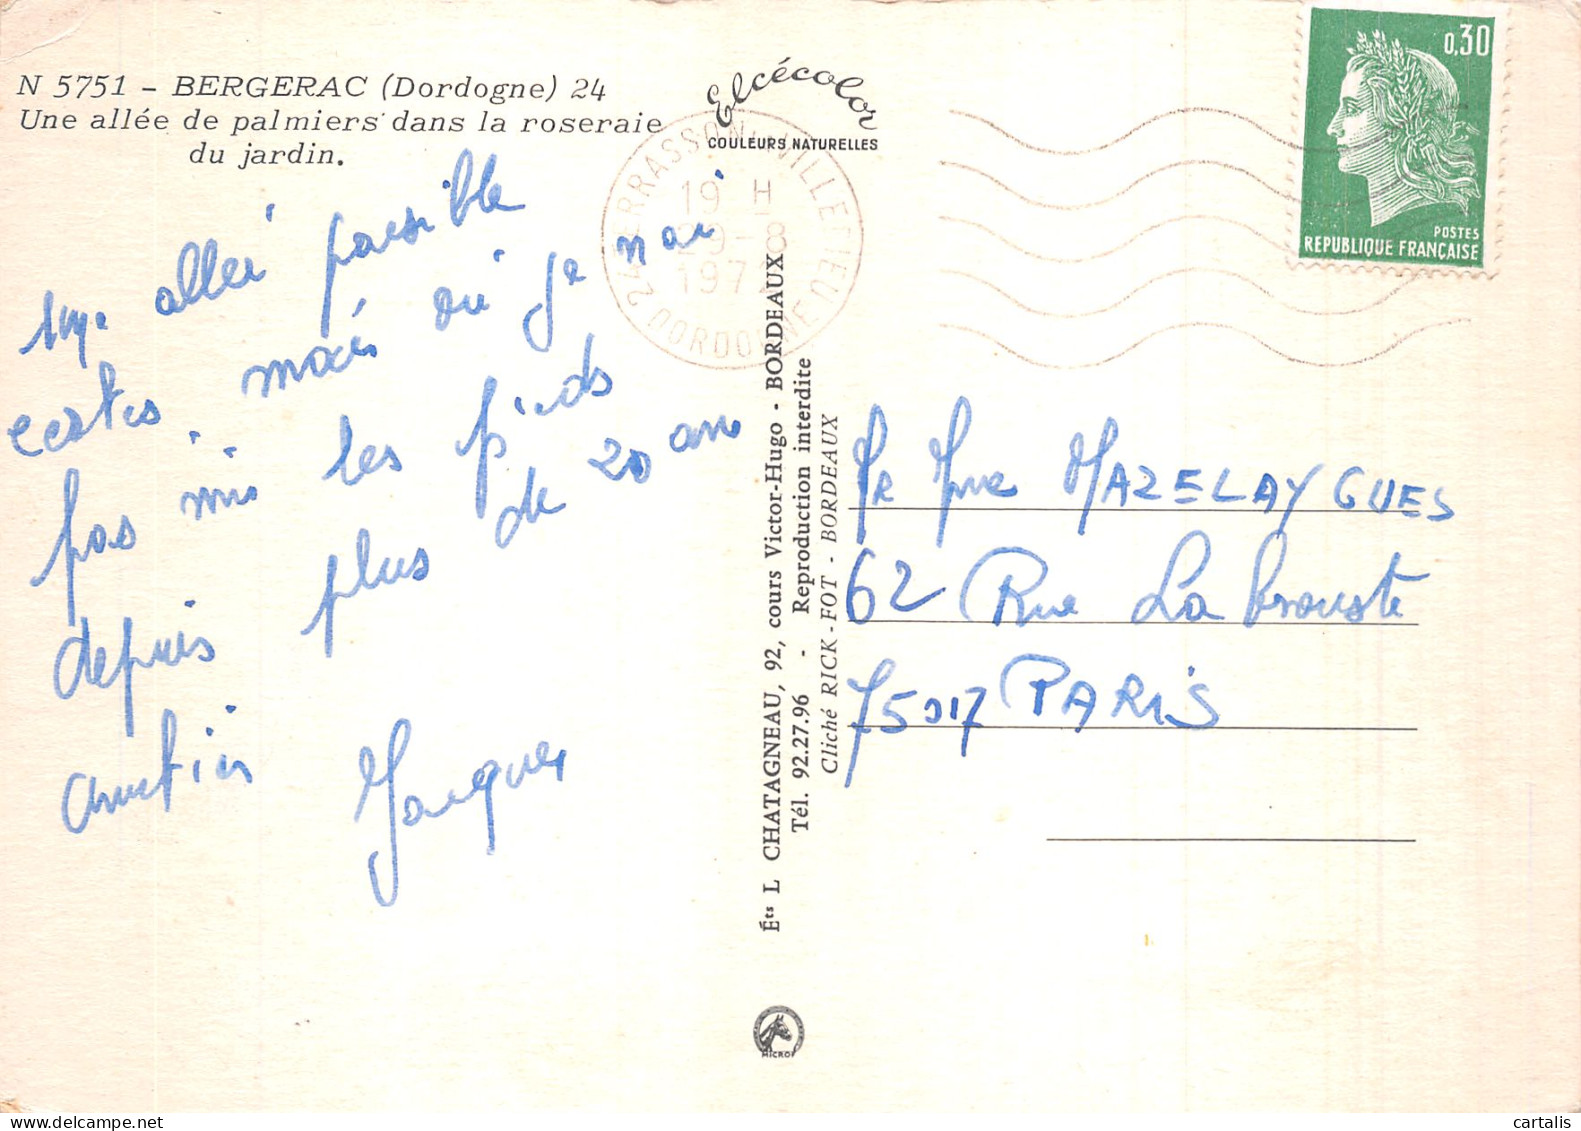 N 5751 - BERGERAC (Dordogne) 24
Une allée de palmiers dans la roseraie
du jardin.
Elcécolor
COULEURS NATURELLES
allée paisible
certes mais où je n'ai
pas mis les pieds
depuis plus de 20 ans
Amitiés Jacques
24 TERRASSON-LA-VILLEDIEU
19 H
29-8
197
DORDOGNE
0,30
POSTES
REPUBLIQUE FRANÇAISE
Éts L CHATAGNEAU, 92, cours Victor-Hugo - BORDEAUX
Tél. 92.27.96 - Reproduction interdite
Cliché RICK-FOT - BORDEAUX
Mr Mme MAZELAYGUES
62 Rue La brouste
75017 PARIS
MICRO
cartalis